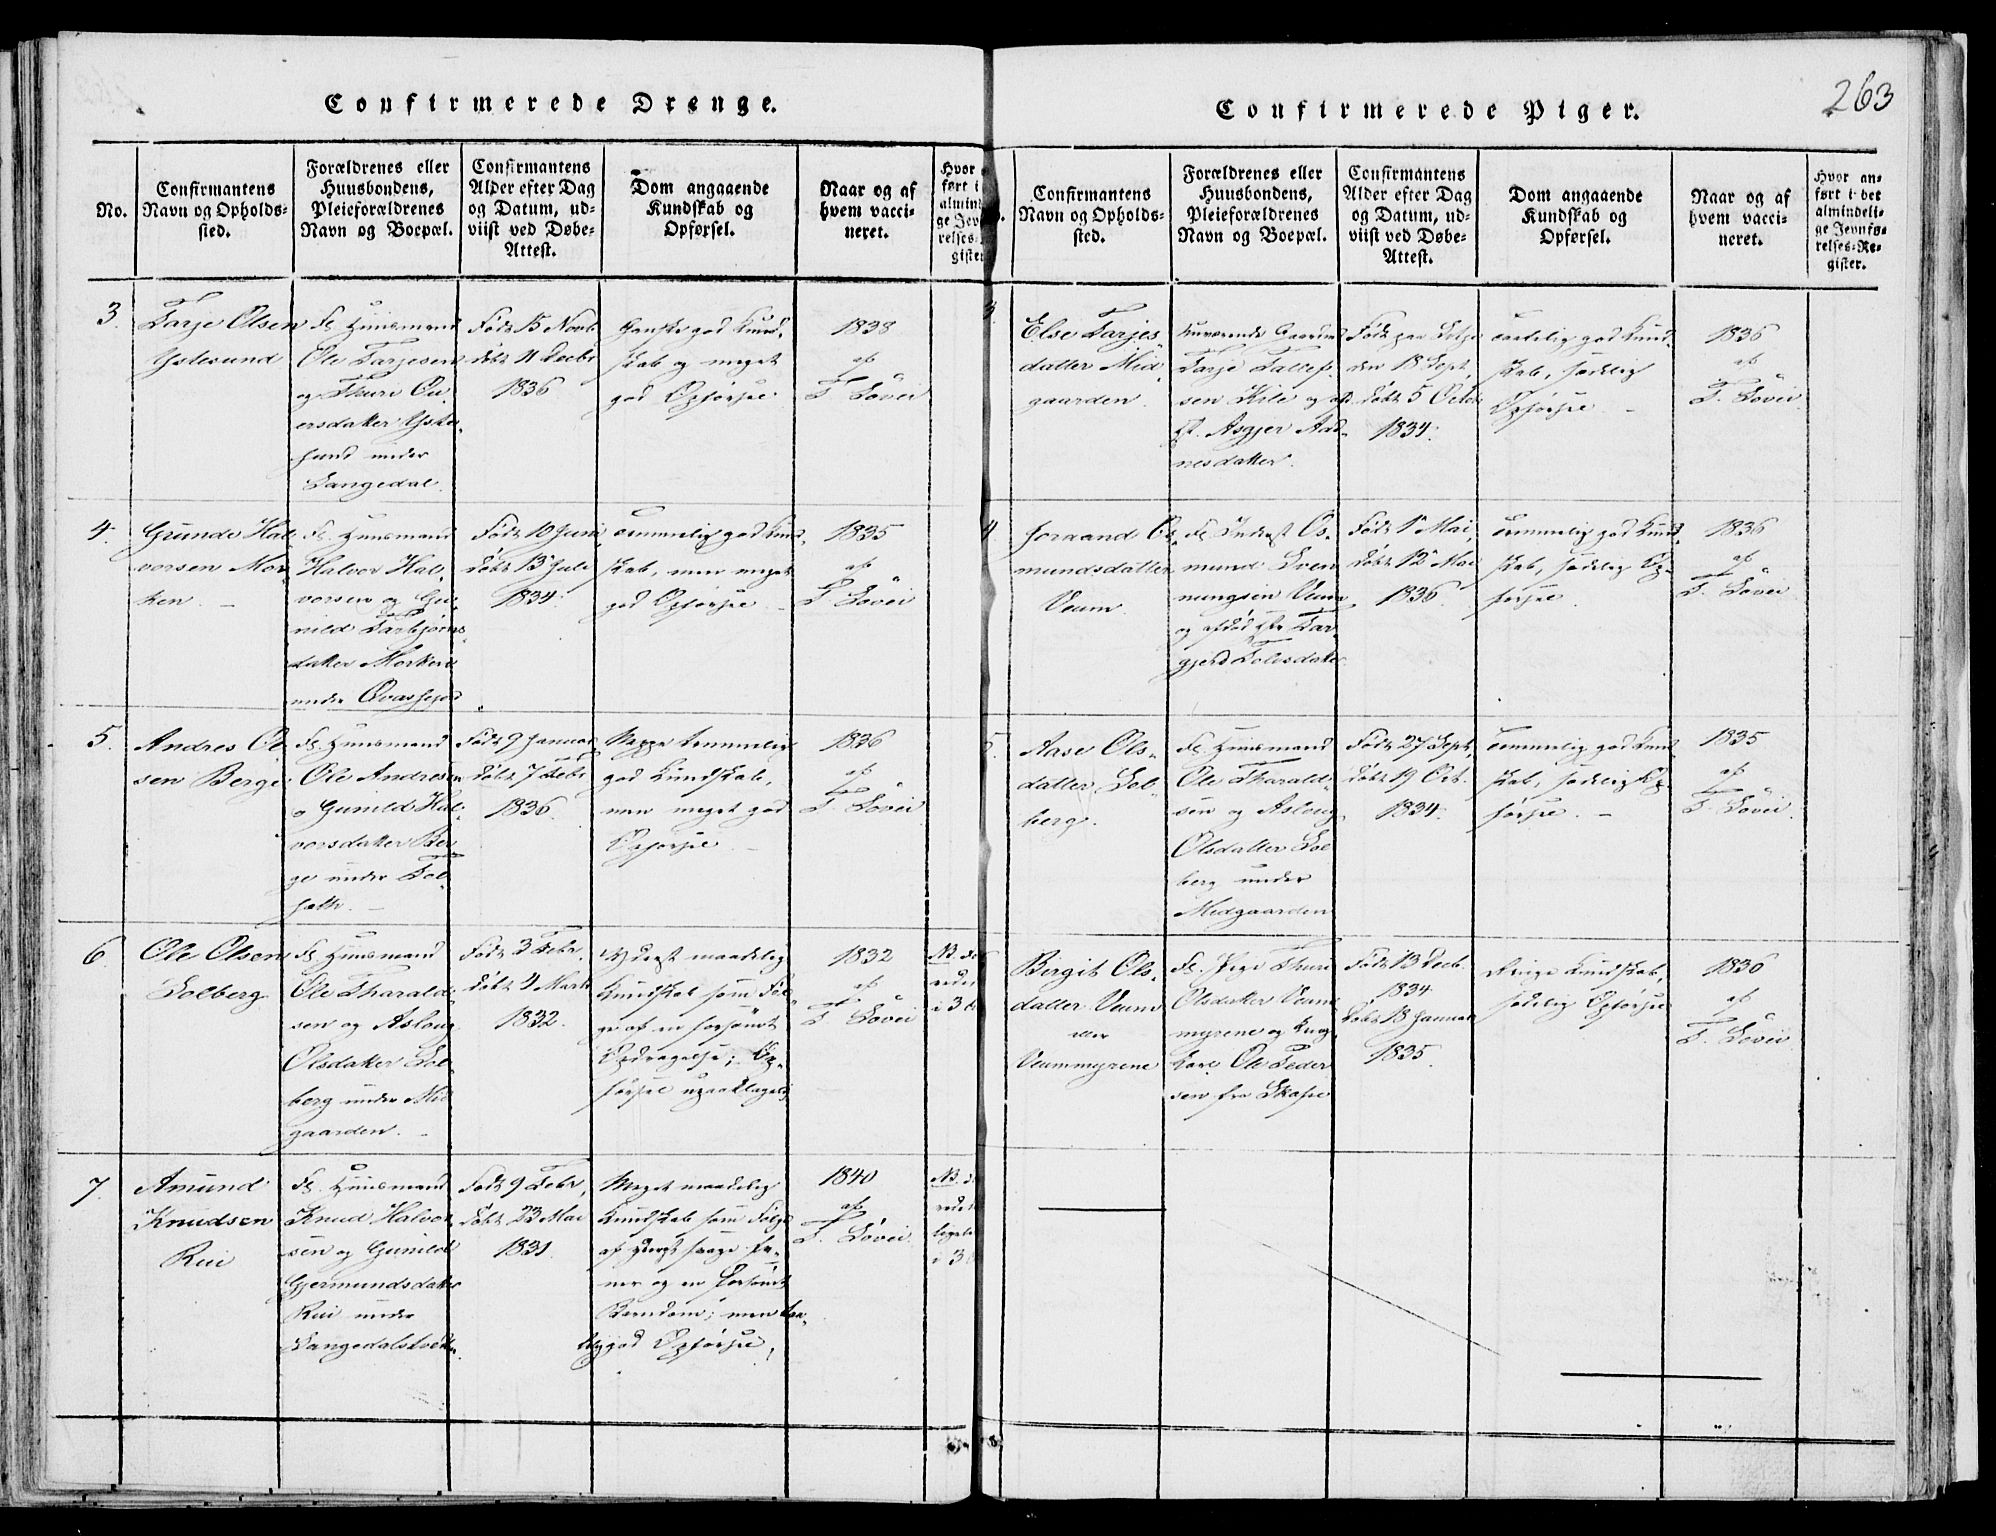 263
Confirmerede Drenge.
No.
Confirmantens
Navn og Opholds-
sted.
Forældrenes eller
Huusbondens,
Pleieforældrenes
Navn og Boepæl.
Confirmantens
Alder efter Dag
og Datum, ud-
viist ved Døbe-
Attest.
Dom angaaende
Kundskab og
Opførsel.
Naar og af
hvem vacci-
neret.
Hvor
ført i
almind
ge Jev
relses-
gister
3.
Tarje Olsen
Ystesund
Fl. Huusmand
Ole Tarjesen
og Thuri
ersdatter Yste-
sund under
Langedal.
Født 15 Novb.
døbt 11 Decbr
1836
Ganske god Kund-
skab og meget
god Opførsel
1838
af
T. Løvei
4.
Gunde Hal-
vorsen Mor-
ken.
Fl. Huusmand
Halvor Hal-
vorsen og Gu-
nild Tarbjørns-
datter Morken
under Qvasshejod
Født 10 Juni,
døbt 13 Juli
1834.
Temmelig god Kund-
skab, men meget
god Opførsel
1835
af
T. Løvei
5.
Andres Ol-
sen Berge
Fl. Huusmand
Ole Andresen
o Gunild Hal-
vorsdatter Ber-
ge under
Født 9 Januar
døbt 7 Febr
1836
Neppe temmelig
god Kundskab,
men meget god
Opførsel
1836
af
T. Løvei
6.
Ole Olsen
Solberg
Fl. Huusmand
Ole Tharald-
sen og Asloug
Olsdatter Sol-
berg under Mid-
gaarden.
Født 3 Febr.
døbt 4 Marts
1832.
Yderst maadelig
Kundskab som Føl-
ge af en forsømt
Opdragelse; Op-
førsel upaaklagelig
1832
af
T. Løvei
NB.
i 3
7.
Amund
Knudsen
Rui
Fl. Huusmand
Knud Halvor-
sen og Gunild
Gjermundsdatter
Rui under
Langedalstvedt.
Født 9 Febr,
døbt 23 Mai
1831.
Meget maadelig
Kundskab som Følge
af yderst svage Ev-
ner og en forsømt
Barndom; men
god Opførsel,
1840
af
T. Løvei
NB.
i 3
Confirmerede Piger.
Confirmantens
Navn og Opholds-
sted.
Forældrenes eller
Huusbondens,
Pleieforældrenes
Navn og Boepæl.
Confirmantens
Alder efter Dag
og Datum, ud-
viist ved Døbe-
Attest.
Dom angaaende
Kundskab og
Opførsel.
Naar og af
hvem vacci-
neret.
Hvor an-
ført i det
almindeli-
ge Jevnfø-
relses-Re-
gister.
3
Else Tarjes-
datter Mid-
gaarden.
nuværende Gaardm
Tarje Tallef-
sen Kile og
Asgjer Aad-
nesdatter.
Født paa
den 18 Sept,
døbt 5 Octob
1834.
god Kund-
skab, sædelig
Opførsel.
1836
af
T. Løvei
4
Joraand Os-
mundsdatter
Veum
Fl. Inderst Os-
mund Sven-
nungsen Veum
og afdød Tar-
gjerd Tolvsdatter
Født 1 Mai,
døbt 12 Mai
1836
Temmelig god Kund-
skab, sædelig Op-
førsel.
1836
af
T. Løvei
5
Aase Ols-
datter Sol-
berg.
Fl. Huusmand
Ole Tharald-
sen og Asloug
Olsdatter Sol-
berg under
Midgaarden
Født 27 Sept,
døbt 19 Oct.
1834.
Temmelig god Kund-
skab, sædelig Op-
førsel.
1835
af
T. Løvei
Bergit Ols-
datter Veum
eller
Veummyrene
Fl. Pige Thuri
Olsdatter Veum-
myrene og Ung-
karl Ole Peder-
sen fra Skafse
Født 13 Decb.
1834
døbt 18 Januar
1835.
Ringe Kundskab,
sædelig Opførsel
1836
af
T. Løvei